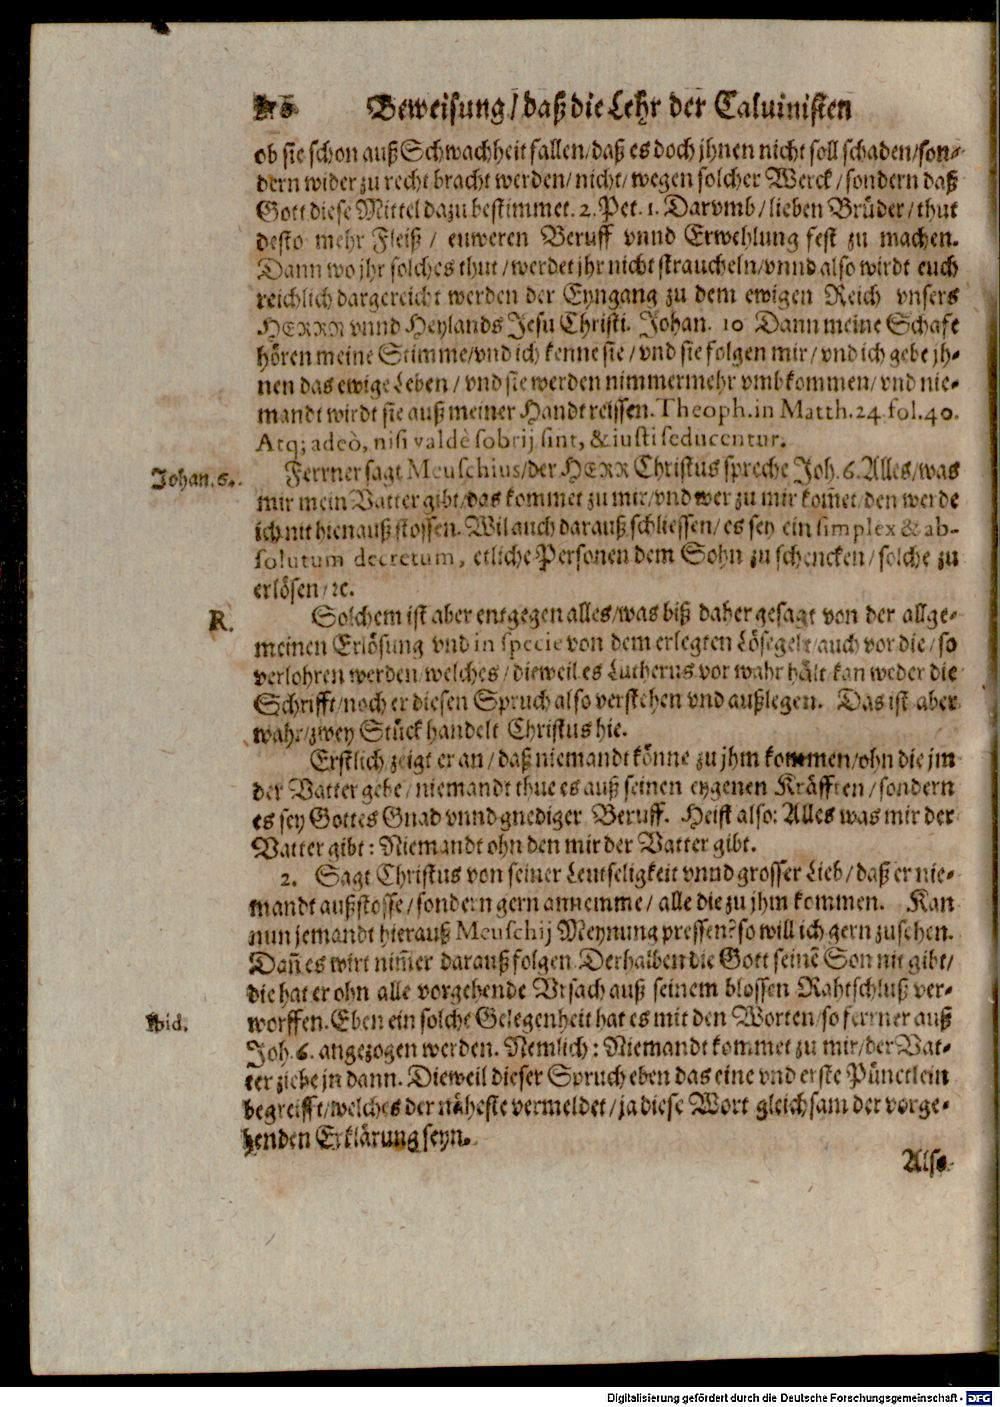 Beweisung/daß die Lehr der Caluinisten
ob sie schon auß Schwachheit fallen/daß es doch jhnen nicht soll schaden/son-
dern wider zu recht bracht werden/nicht/wegen solcher Werck/sondern daß
Gott diese Mittel dazu bestimmet. 2. Pet. 1. Darvmb/lieben Brüder/thut
desto mehr Fleiß/ euweren Beruff vnnd Erwehlung fest zu machen.
Dann wo jhr solches thut/werdet jhr nicht straucheln/vnnd also wirdt euch
reichlich dargereicht werden der Eyngang zu dem ewigen Reich vnsers
HERRN vnnd Heylands Jesu Christi. Johan. 10 Dann meine Schafe
hören meine Stimme/vnd ich kenne sie/vnd sie folgen mir/vnd ich gebe jh-
nen das ewige Leben/vnd sie werden nimmermehr vmbkommen/vnd nie-
mandt wirdt sie auß meiner Handt reissen. Theoph. in Matth. 24. fol. 40.
Atq; adeò, nisi valdè sobrij sint, & iusti seducentur.
Johan. 6. Ferrner sagt Meuschius/der HERR Christus spreche Joh. 6. Alles/was
mir mein Vatter gibt/das kommet zu mir/vnd wer zu mir kom̃et/den werde
ich nit hienauß stossen. Wil auch darauß schliessen/es sey ein simplex & ab-
solutum decretum, etliche Personen dem Sohn zu schencken/solche zu
erlösen/ꝛc.
R. Solchem ist aber entgegen alles/was biß daher gesagt von der allge-
meinen Erlösung vnd in specie von dem erlegten Lösegelt/auch vor die/so
verlohren werden/welches/dieweil es Lutherus vor wahr hält kan weder die
Schrifft/noch er diesen Spruch also verstehen vnd außlegen. Das ist aber
wahr/zwey Stück handelt Christus hie.
Erstlich zeigt er an/daß niemandt könne zu jhm kommen/ohn die jm
der Vatter gebe/niemandt thue es auß seinen eygenen Kräfften/sondern
es sey Gottes Gnad vnnd gnediger Beruff. Heist also: Alles was mir der
Vatter gibt: Niemandt ohn den mir der Vatter gibt.
2. Sagt Christus von seiner Leutseligkeit vnnd grosser Lieb/daß er nie-
mandt außstosse/sondern gern annemme/alle die zu jhm kommen. Kan
nun jemandt hierauß Meuschij Meynung pressen? so will ich gern zusehen.
Dañ es wirt nim̃er darauß folgen Derhalben die Gott seinẽ Son nit gibt/
die hat er ohn alle vorgehende Vrsach auß seinem blossen Rahtschluß ver-
Ibid. worffen. Eben ein solche Gelegenheit hat es mit den Worten/so ferrner auß
Joh. 6. angezogen werden. Nemlich: Niemandt kommet zu mir/der Vat-
ter ziehe jn dann. Dieweil dieser Spruch eben das eine vnd erste Pünctlein
begreifft/welches der näheste vermeldet/ja diese Wort gleichsam der vorge-
henden Erklärung seyn.
Also
Digitalisierung gefördert durch die Deutsche Forschungsgemeinschaft - DFG